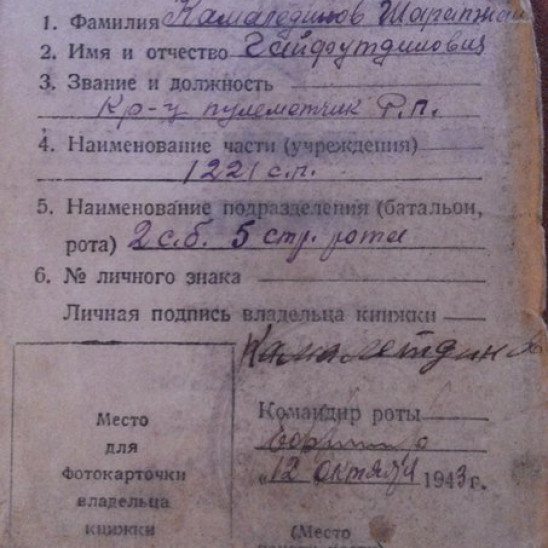 1. Фамилия Камалединов Шарапжан
2. Имя и отчество Гайфутдинович
3. Звание и должность
Кр-ц пулеметчик Р.П.
4. Наименование части (учреждения)
1221 с.п.
5. Наименование подразделения (батальон,
рота) 2 с.б. 5 стр. рота
6. № личного знака
Личная подпись владельца книжки
Камалетдинов
Командир роты
Место
для
фотокарточки
владельца
книжки
„12 октября 1943 г.
(Место